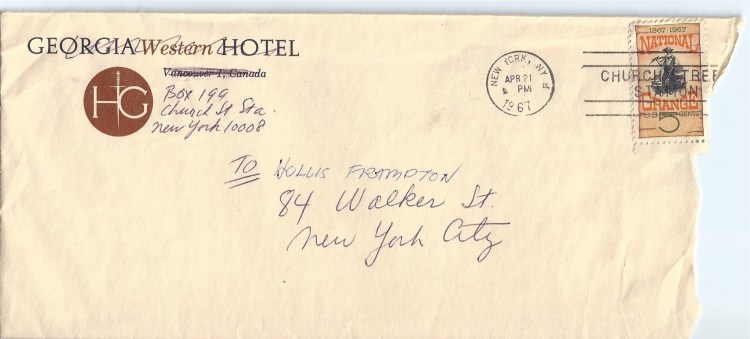 GEORGIA Western HOTEL
Vancouver 1, Canada
HG
Box 199
Church St Sta.
New York 10008
NEW YORK, NY
APR 21
PM
1967
CHURCH STREE
STATION
1867-1967
NATIONAL
GRANGE
5 CENTS
TO HOLLIS FRAMPTON
84 Walker St.
New York City